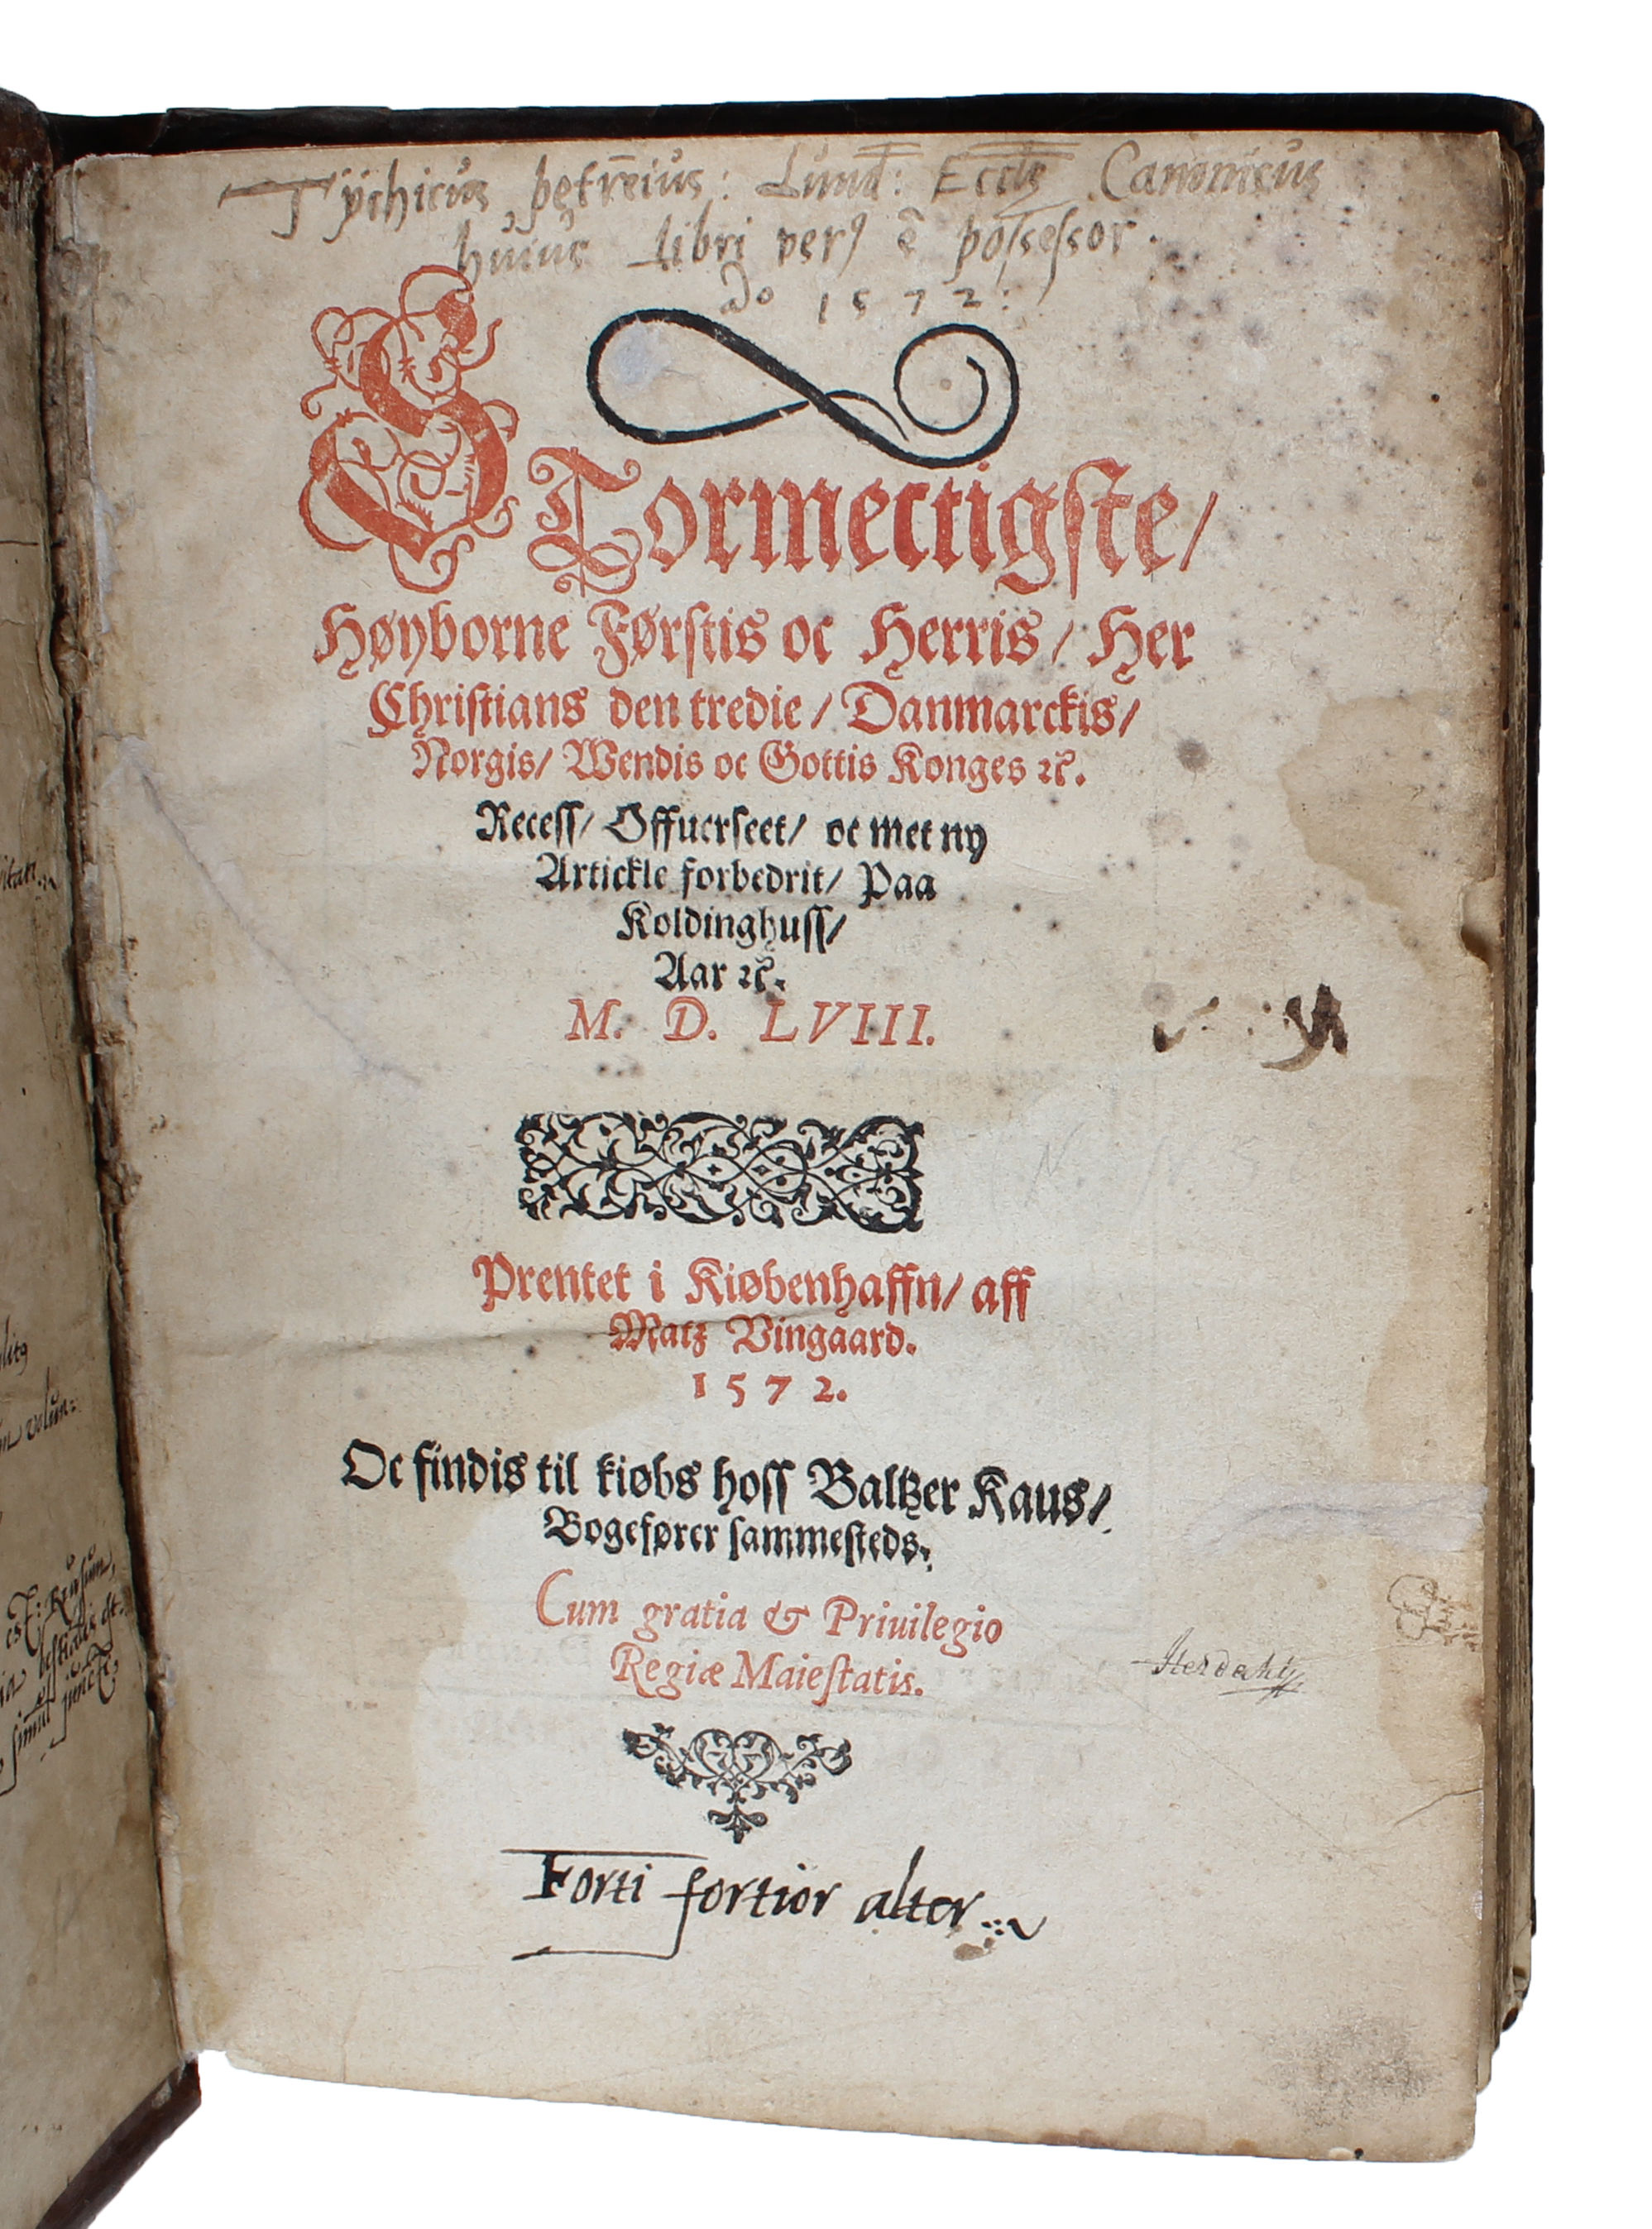 Tÿchicus petreius: Lund: Eccls Canonicus
huius libri verꝰ ē possessor.
Ao 1572:
STormectigste/
Høyborne Førstis oc Herris/ Her
Christians den tredie/ Danmarckis/
Norgis/ Wendis oc Gottis Konges ꝛc̃.
Recess/ Offuerseet/ oc met ny
Artickle forbedrit/ Paa
Koldinghuss/
Aar ꝛc̃.
M. D. LVIII.
Prentet i Kiøbenhaffn/ aff
Matz Vingaard.
1572.
Oc findis til kiøbs hoss Baltzer Kaus/
Bogefører sammesteds.
Cum gratia & Priuilegio
Regiæ Maiestatis.
Forti fortior alter